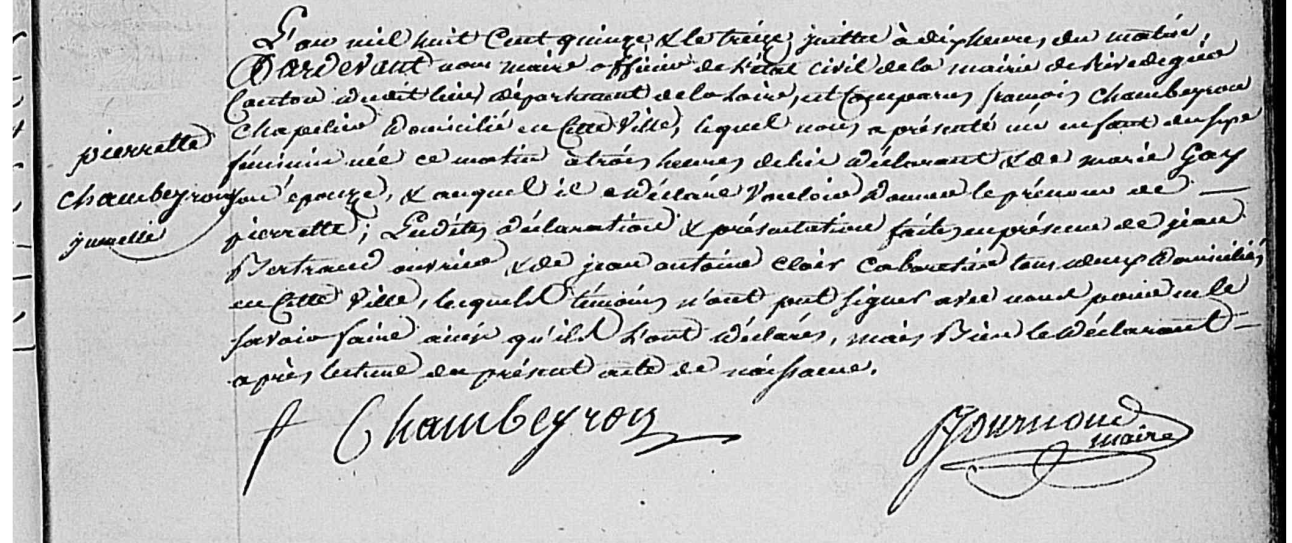 L'an mil huit Cent quinze, & le treize juillet à dix heures du matin,
Pardevant nous maire officier de l'état civil de la mairie de Rivedegier
Canton dudit lieu, département de la Loire, est Comparu françois Chambeyron
Chapelier Domicilié en Cette Ville, lequel nous a présenté un enfant du sexe
pierrette
féminin née ce matin à trois heures de lui déclarant & de marie Gay
chambeyron
son épouze, & auquel il a déclaré Vouloir Donner le prénom de —
jumelle
pierrette; Lesdites déclaration & présentation faites en présence de jean
Bertrand ouvrier & de jean antoine clair Cabaretier tous deux Domiciliés
en Cette Ville, lesquels témoins n'ont put signer avec nous pour ne le
savoir faire ainsi qu'ils l'ont déclarés, mais Bien le déclarant —
après lecture du présent acte de naissance.
f Chambeyron
Journoud
maire